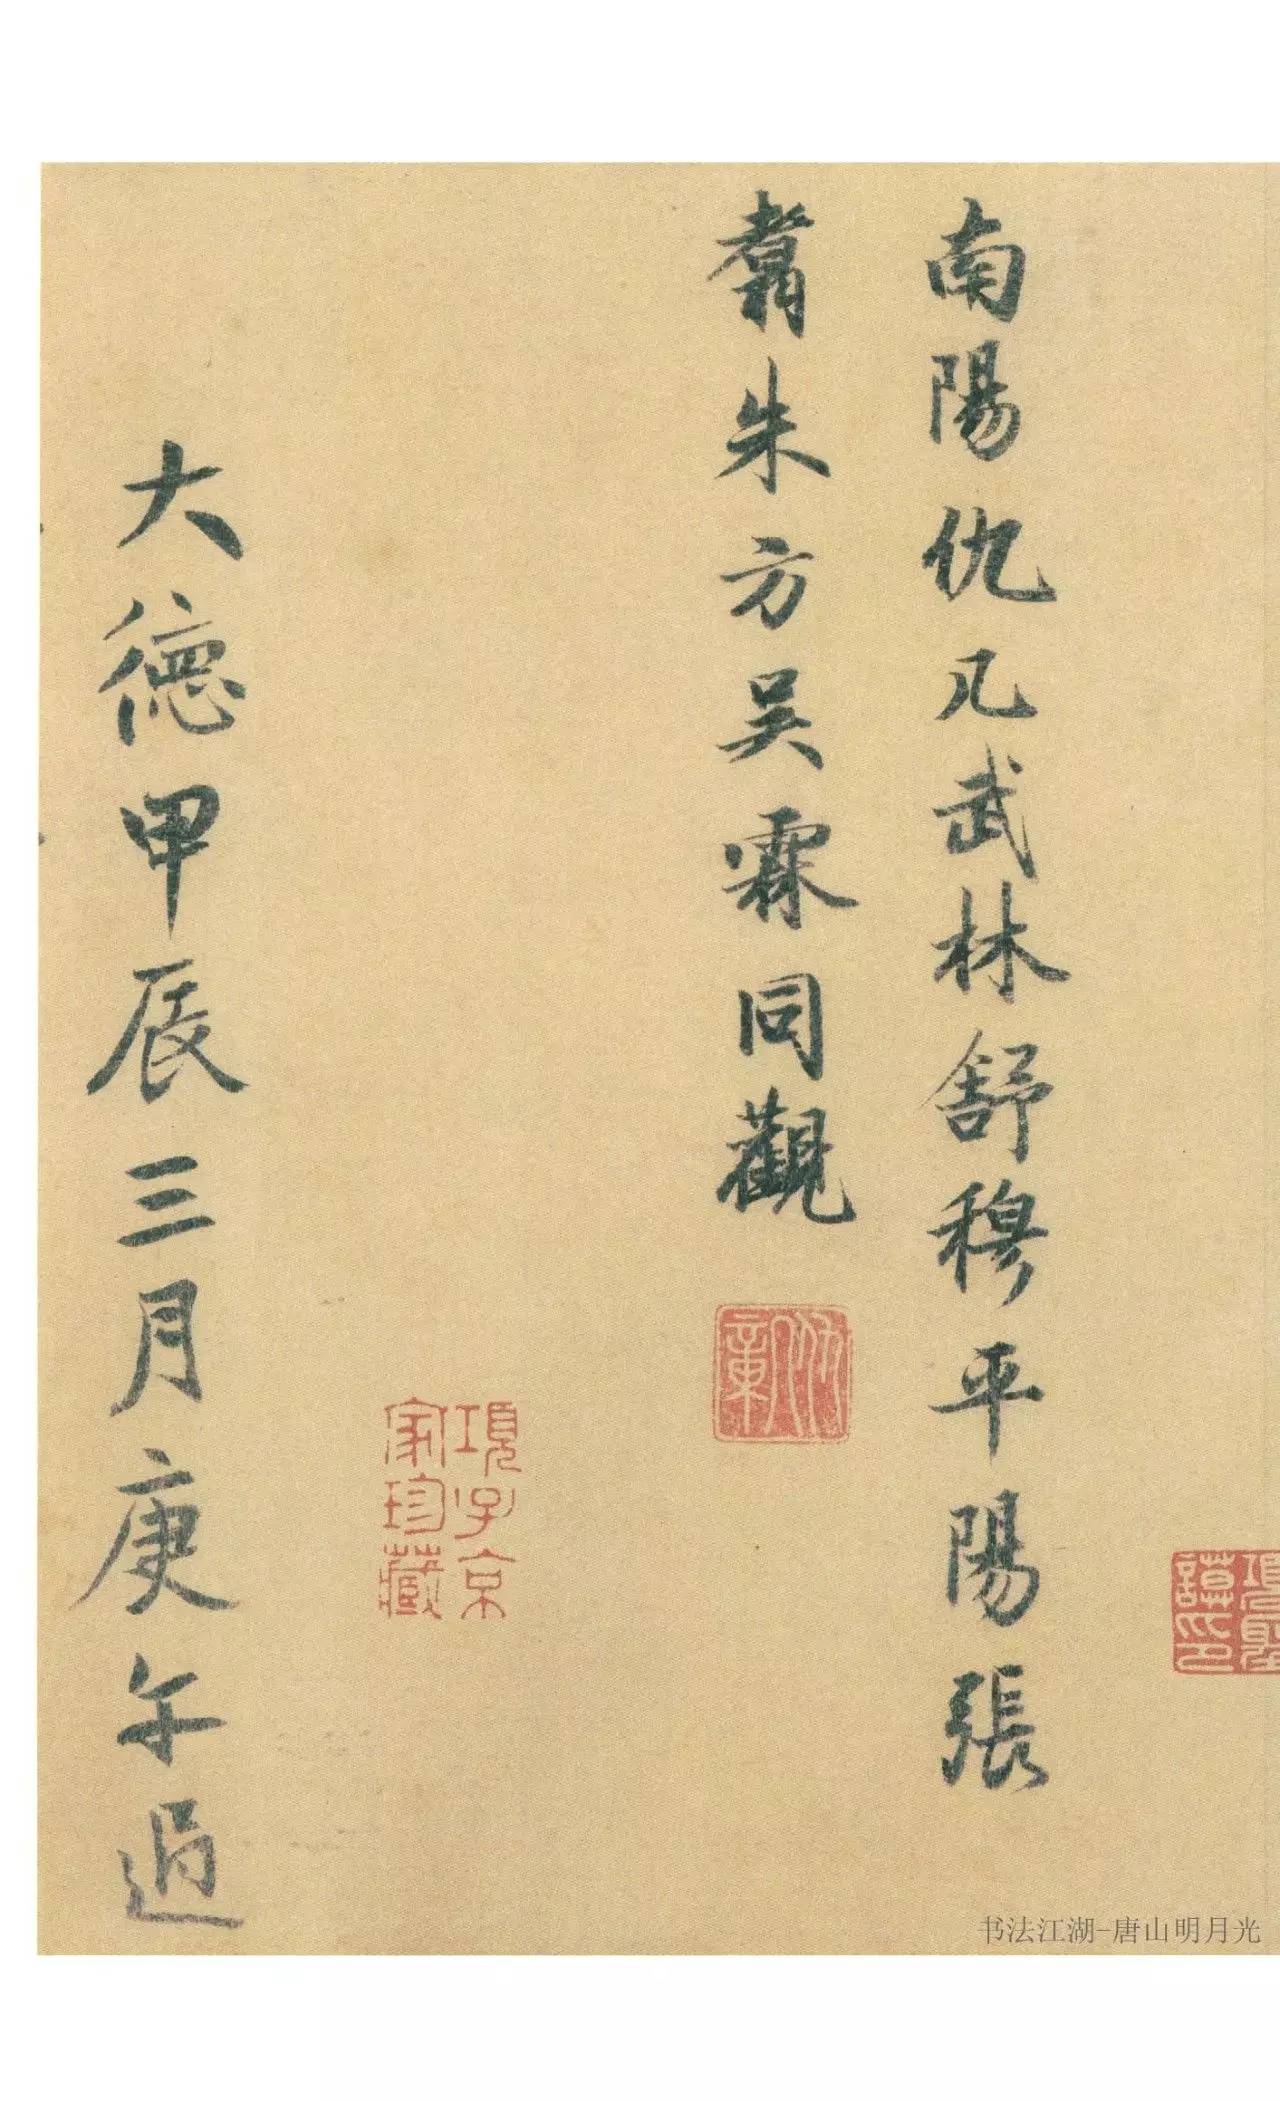 項聖謨印
南陽仇几武林舒穆平陽張
翥朱方吳霖同觀
項子京家珍藏
大德甲辰三月庚午過
书法江湖-唐山明月光